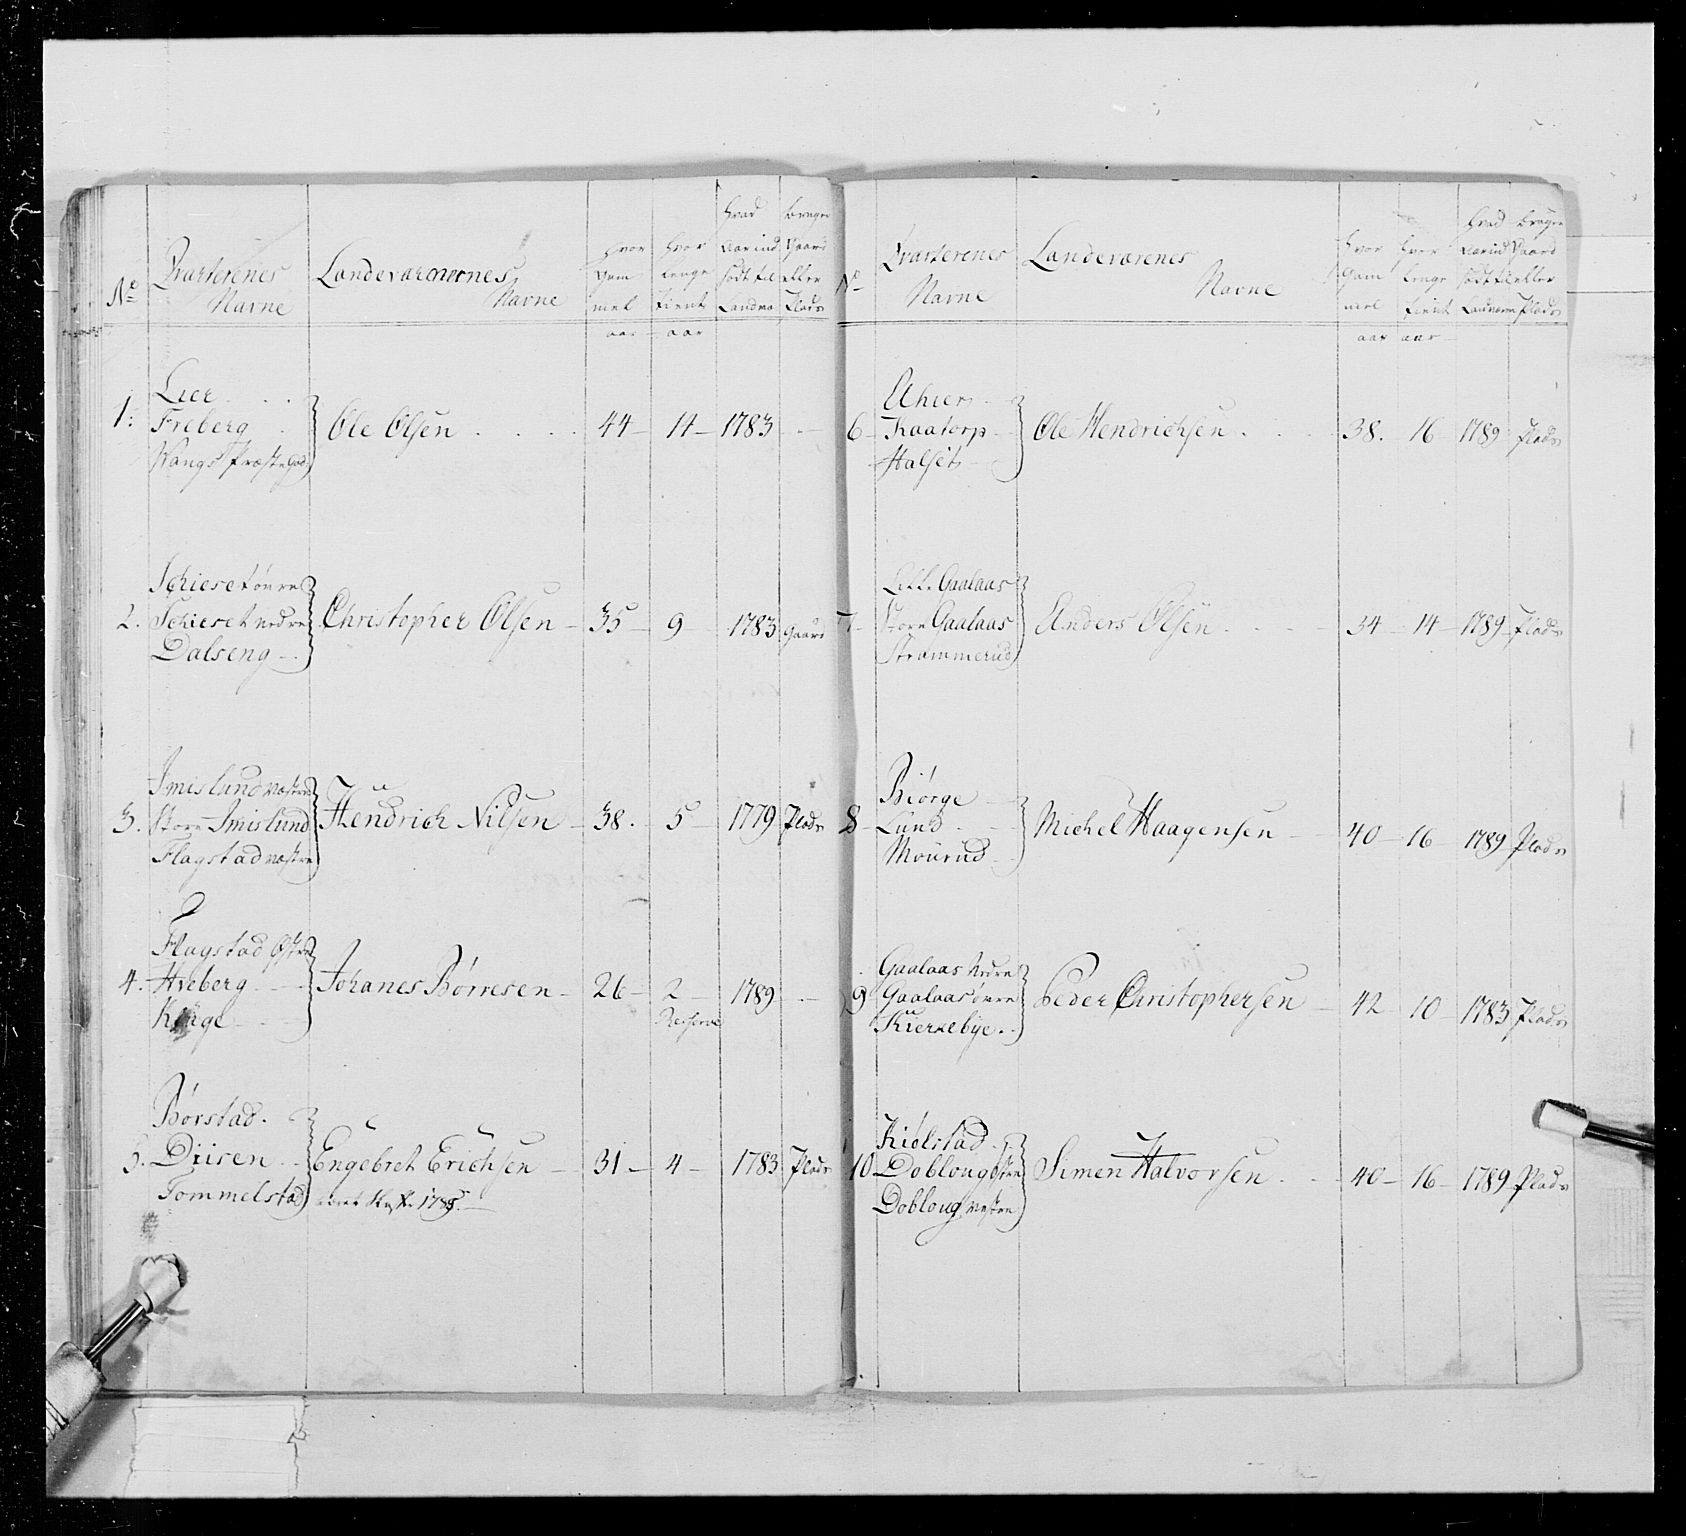 No
Qvarterenes
Navne
Landeværnernes
Navne
Hvor
Gam
mel
aar
Hvor
lenge
tient
aar
Hvad
Aar ind
født til
Landvæ
bruger
Gaard
eller
Plads
1.
Lier
Freberg
Vangs Præste Gd
Ole Olsen
44 14 1783
2.
Schieset øvre
Schieset nedre
Dalseng
Christopher Olsen
35 9 1783 gaard
3.
Imislund væstre
Store Imislund
Flagstad væstre
Hendrich Nilsen
38. 5 1779 Plads
4.
Flagstad Østre
Hveberg
Kurge
Johanes Børresen
26 2 1789
Reserve
5.
Børstad
Diisen
Tommelstad
Engebret Erichsen
31 4 1783 Plads
1785
No
Qvarterenes
Navne
Landeværenes
Navne
Hvor
Gam
mel
aar
Hvor
lenge
tient
aar
Hvad
Aar ind
født til
Landværn
bruger
Gaard
eller
Plads
6
Kaatorp
Halset
Ole Hendrichsen
38. 16 1789 Plads
7
Litle Gaalaas
Store Gaalaas
Strømmerud
Anders Olsen
34 14 1789 Plads
8
Biørge
Lund
Mourud
Michel Haagensen
40 16 1789 Plads
9
Gaalaas Nedre
Gaalaas øvre
Kierkebye
Peder Christophersen
42 10 1783 Plads
10
Kiølstad
Doblong østre
Doblong Vestre
Simen Halvorsen
40 16 1789 Plads